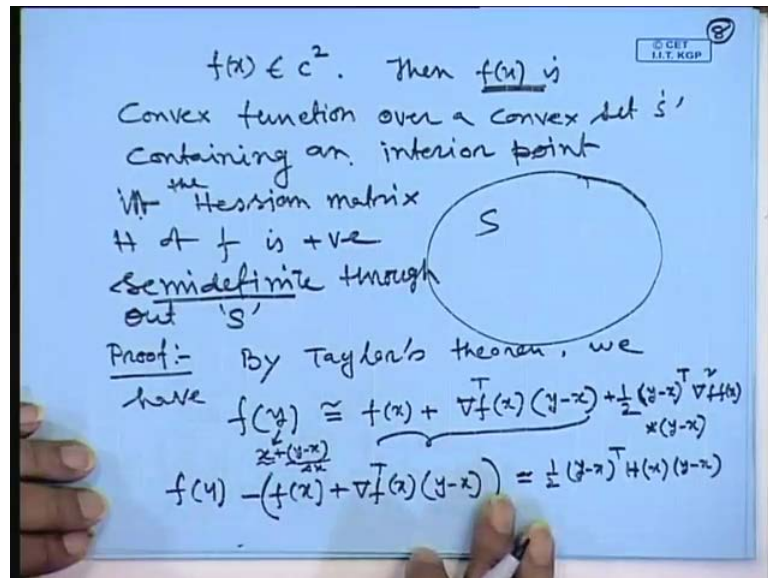 8
© CET
I.I.T. KGP
f(x) ∈ c². Then f(x) is
Convex function over a convex set 'S'
containing an interior point
iff the Hessian matrix
H of f is +ve
semidefinite through
out 'S'
S
Proof:- By Taylor's theorem, we
have f(y) ≅ f(x) + ∇ᵀf(x) (y-x) + 1/2 (y-x)ᵀ ∇²f(x)
*(y-x)
x+(y-x)
Δx
f(y) - (f(x) + ∇ᵀf(x)(y-x)) ≅ 1/2 (y-x)ᵀ H(x) (y-x)